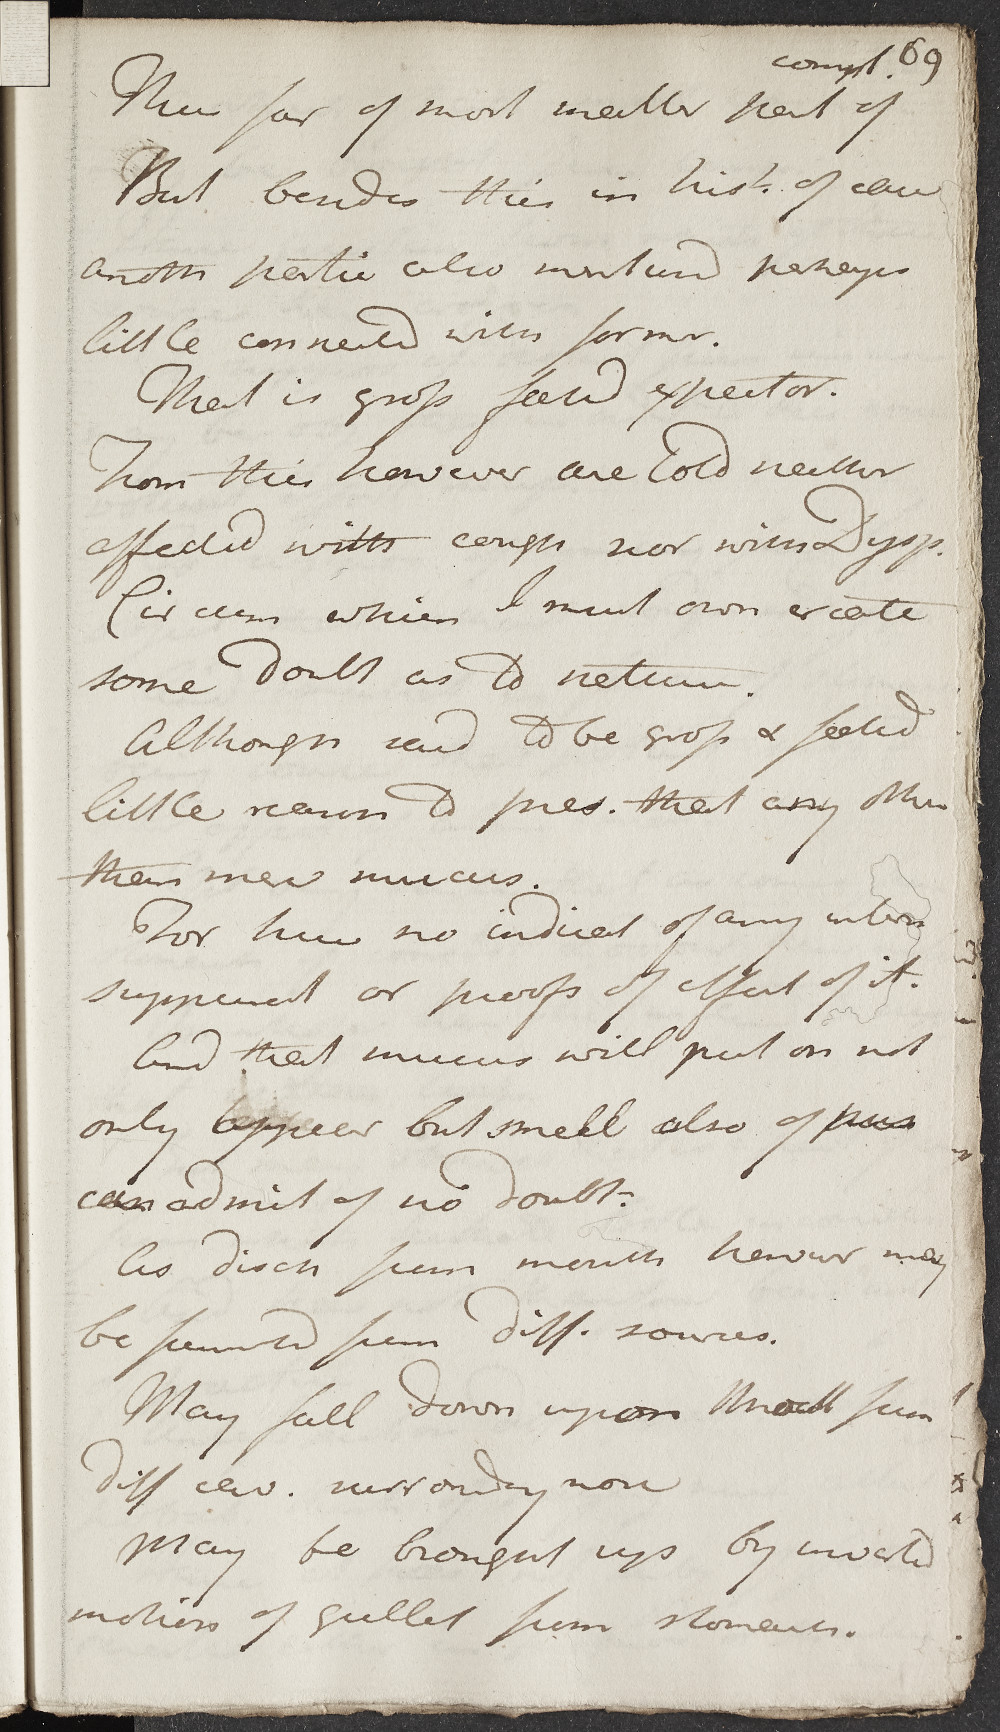 69
Thus far of most matter part of compl.
But besides this in hist. of case
anoth partic also mentiond perhaps
little connected with former.
That is gross foetid expector.
From this however are told neither
affected with cough nor with Dysp.
Circum which I must own create
some doubt as to nature.
Although said to be gross & foetid
little reason to pres. that any other
than mere mucus.
For here no indicat of any intern
suppurat or proofs of effect of it.
And that mucus will put on not
only appear but smell also of pus
can admit of no doubt.
As disch from mouth however may
be furnishd from diff. sources.
May fall down upon throat from
diff cav. surrounding nose
May be brought up by inverted
motions of gullet from stomach.